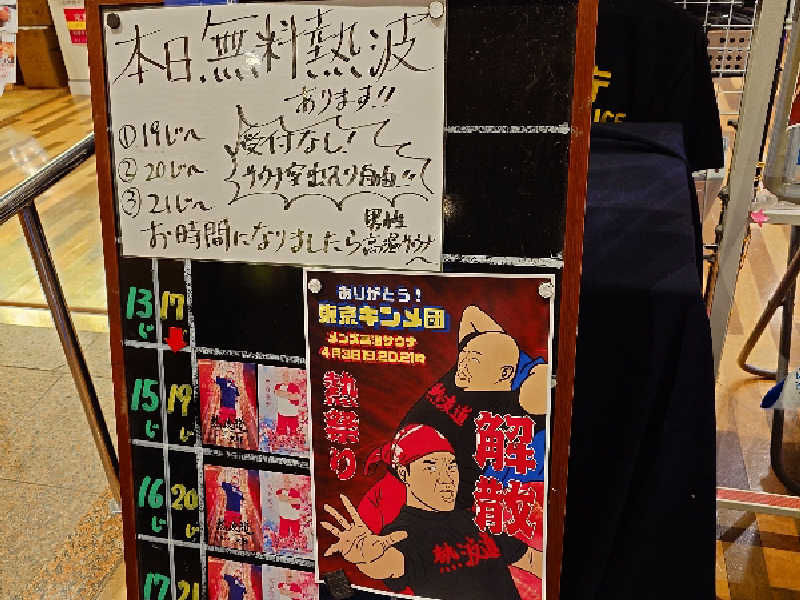 本日無料熱波
あります!!
①19じ〜
②20じ〜
③21じ〜
受付なし!
サウナ室出入り自由!!
お時間になりましたら
男性
高温サウナへ
13じ
17じ
15じ
19じ
16じ
20じ
17
21
ありがとう!
東京キンメ団
メンズ高温サウナ
4月3日19.20.21時
熱祭り
熱波道
解散
熱波道